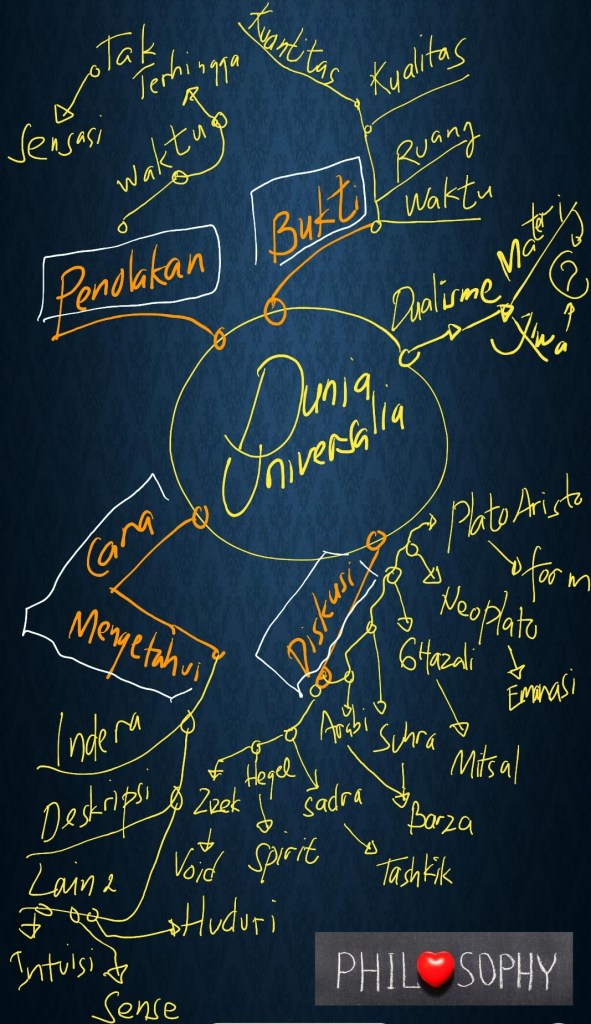 Tak
Terhingga
Sensasi
Waktu
Penolakan
Kuantitas
Kualitas
Ruang
Waktu
Bukti
Dualisme Materi
?
Jiwa
Dunia
Universalia
Cara
Mengetahui
Indera
Deskripsi
Lain2
Huduri
Intuisi
Sense
Diskusi
Plato Aristo
form
Neoplato
Emanasi
GHazali
Mitsal
Suhra
Barza
Arabi
Sadra
Tashkik
Hegel
Spirit
Zizek
Void
PHILOSOPHY